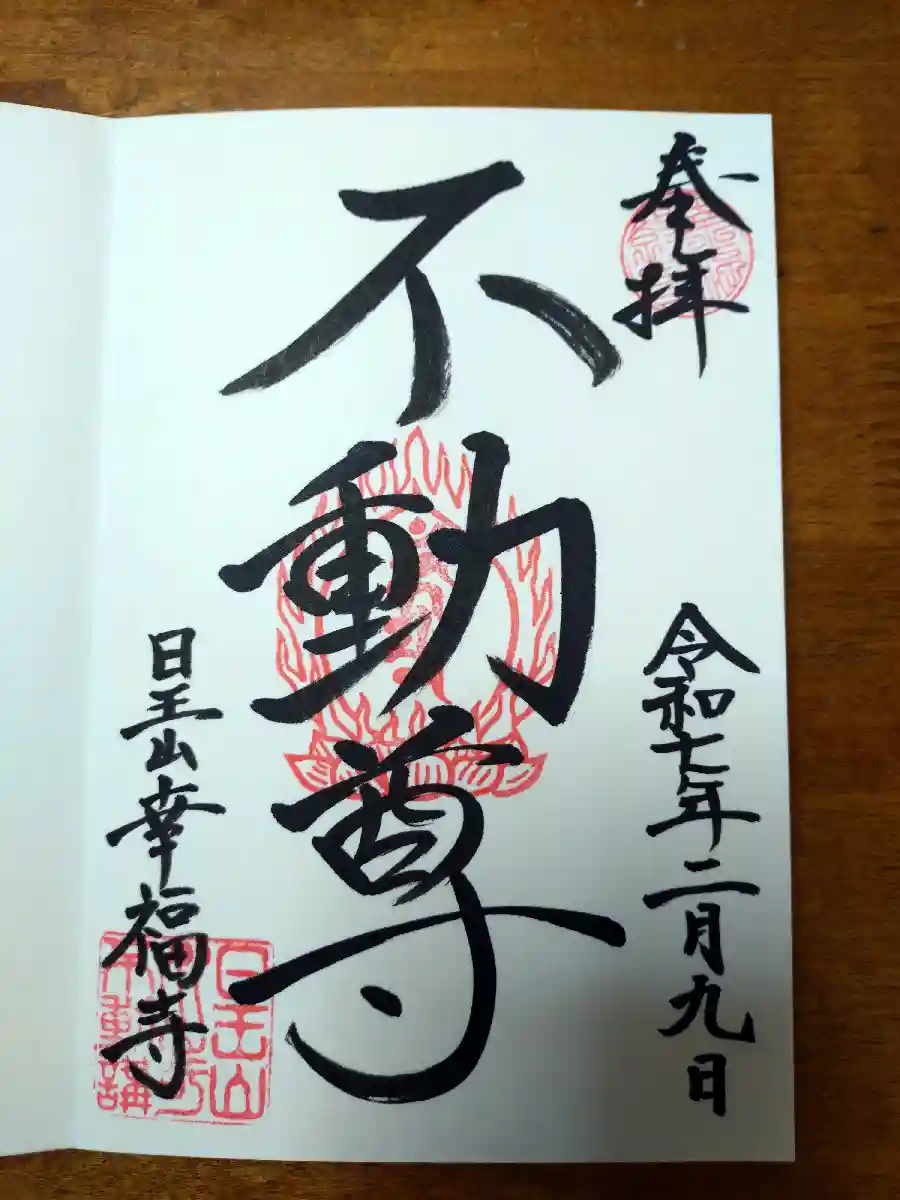 奉拝
令和七年二月九日
不動尊
日王山幸福寺
日王山